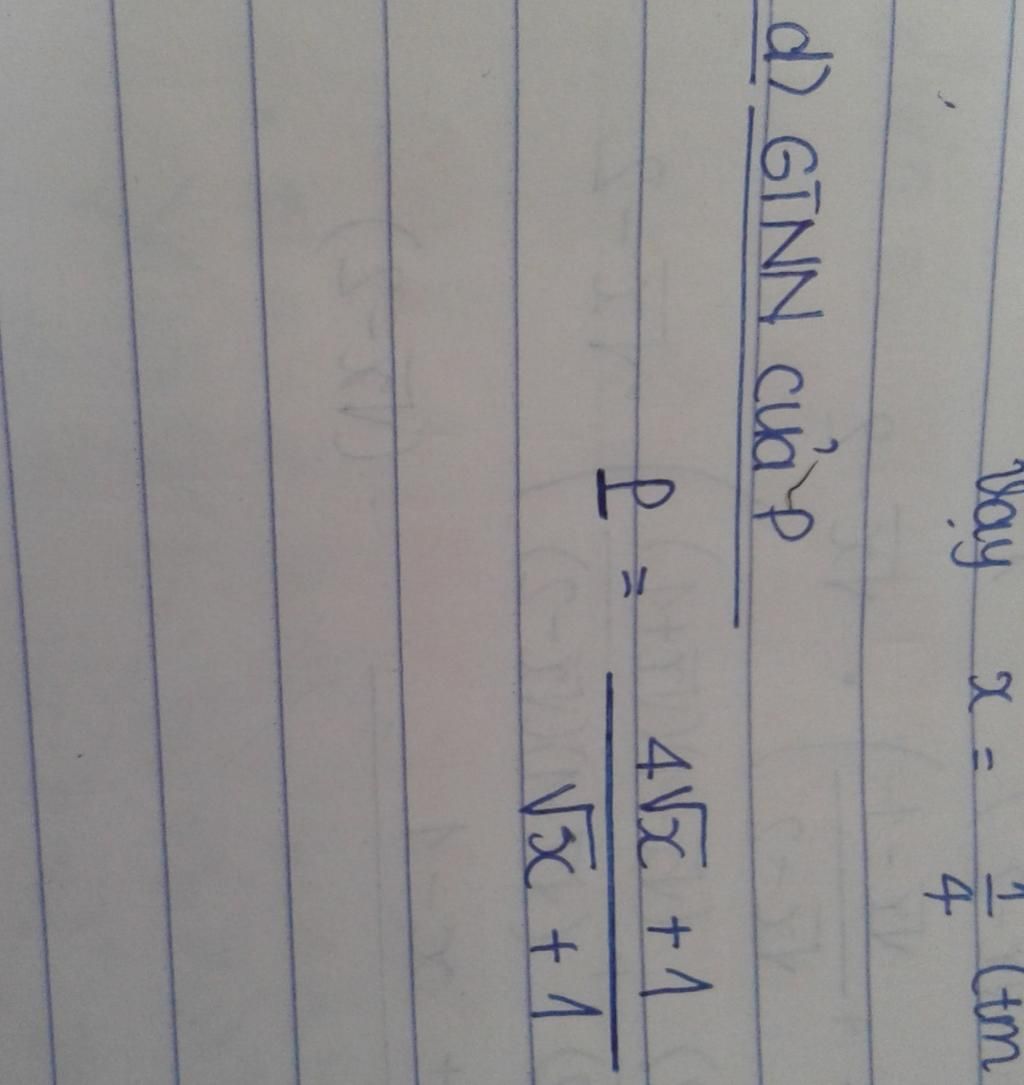 Vậy x = 1/4 (tm
d) GTNN của P
P = 4√x + 1 / √x + 1